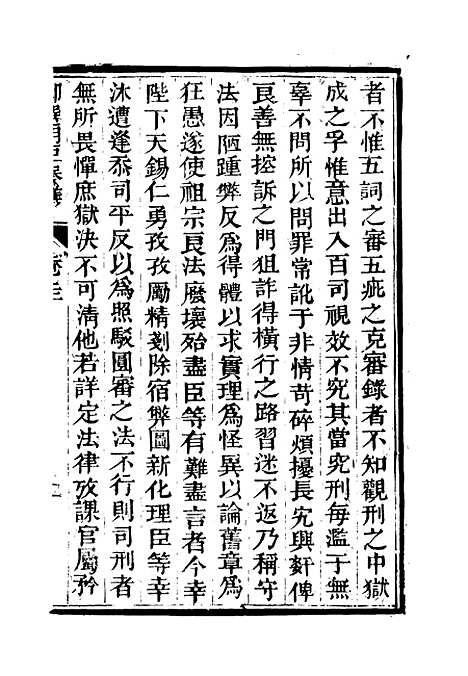 者不惟五詞之審五疵之克審錄者不知觀刑之中獄
成之孚惟意出入百司視效不究其當究刑每濫于無
辜不問所以問罪常訛于非情苛碎煩擾長宄與姧俾
良善無控訴之門狙詐得橫行之路習迷不返乃稱守
法因陋踵弊反爲得體以求實理爲怪異以論舊章爲
狂愚遂使祖宗良法廢壞殆盡臣等有難盡言者今幸
陛下天錫仁勇孜孜勵精剗除宿弊圖新化理臣等幸
沐遭逢忝司平反以爲照駁圓審之法不行則司刑者
無所畏憚庶獄決不可清他若詳定法律攷課官屬矜
御選明臣奏議 卷三